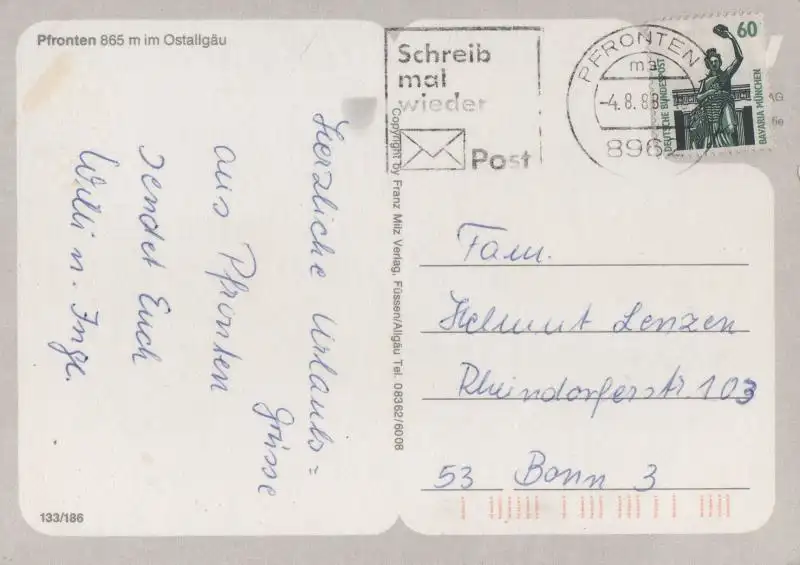 Pfronten 865 m im Ostallgäu
Herzliche Urlaubs=
grüsse
aus Pfronten
sendet Euch
Willi u. Inge.
133/186
Copyright by Franz Milz Verlag, Füssen/Allgäu Tel. 08362/6008
Schreib
mal
wieder
Post
PFRONTEN
-4.8.88
8962
60
DEUTSCHE BUNDESPOST
BAVARIA MÜNCHEN
Fam.
Helmut Lenzen
Rheindorferstr. 103
53 Bonn 3